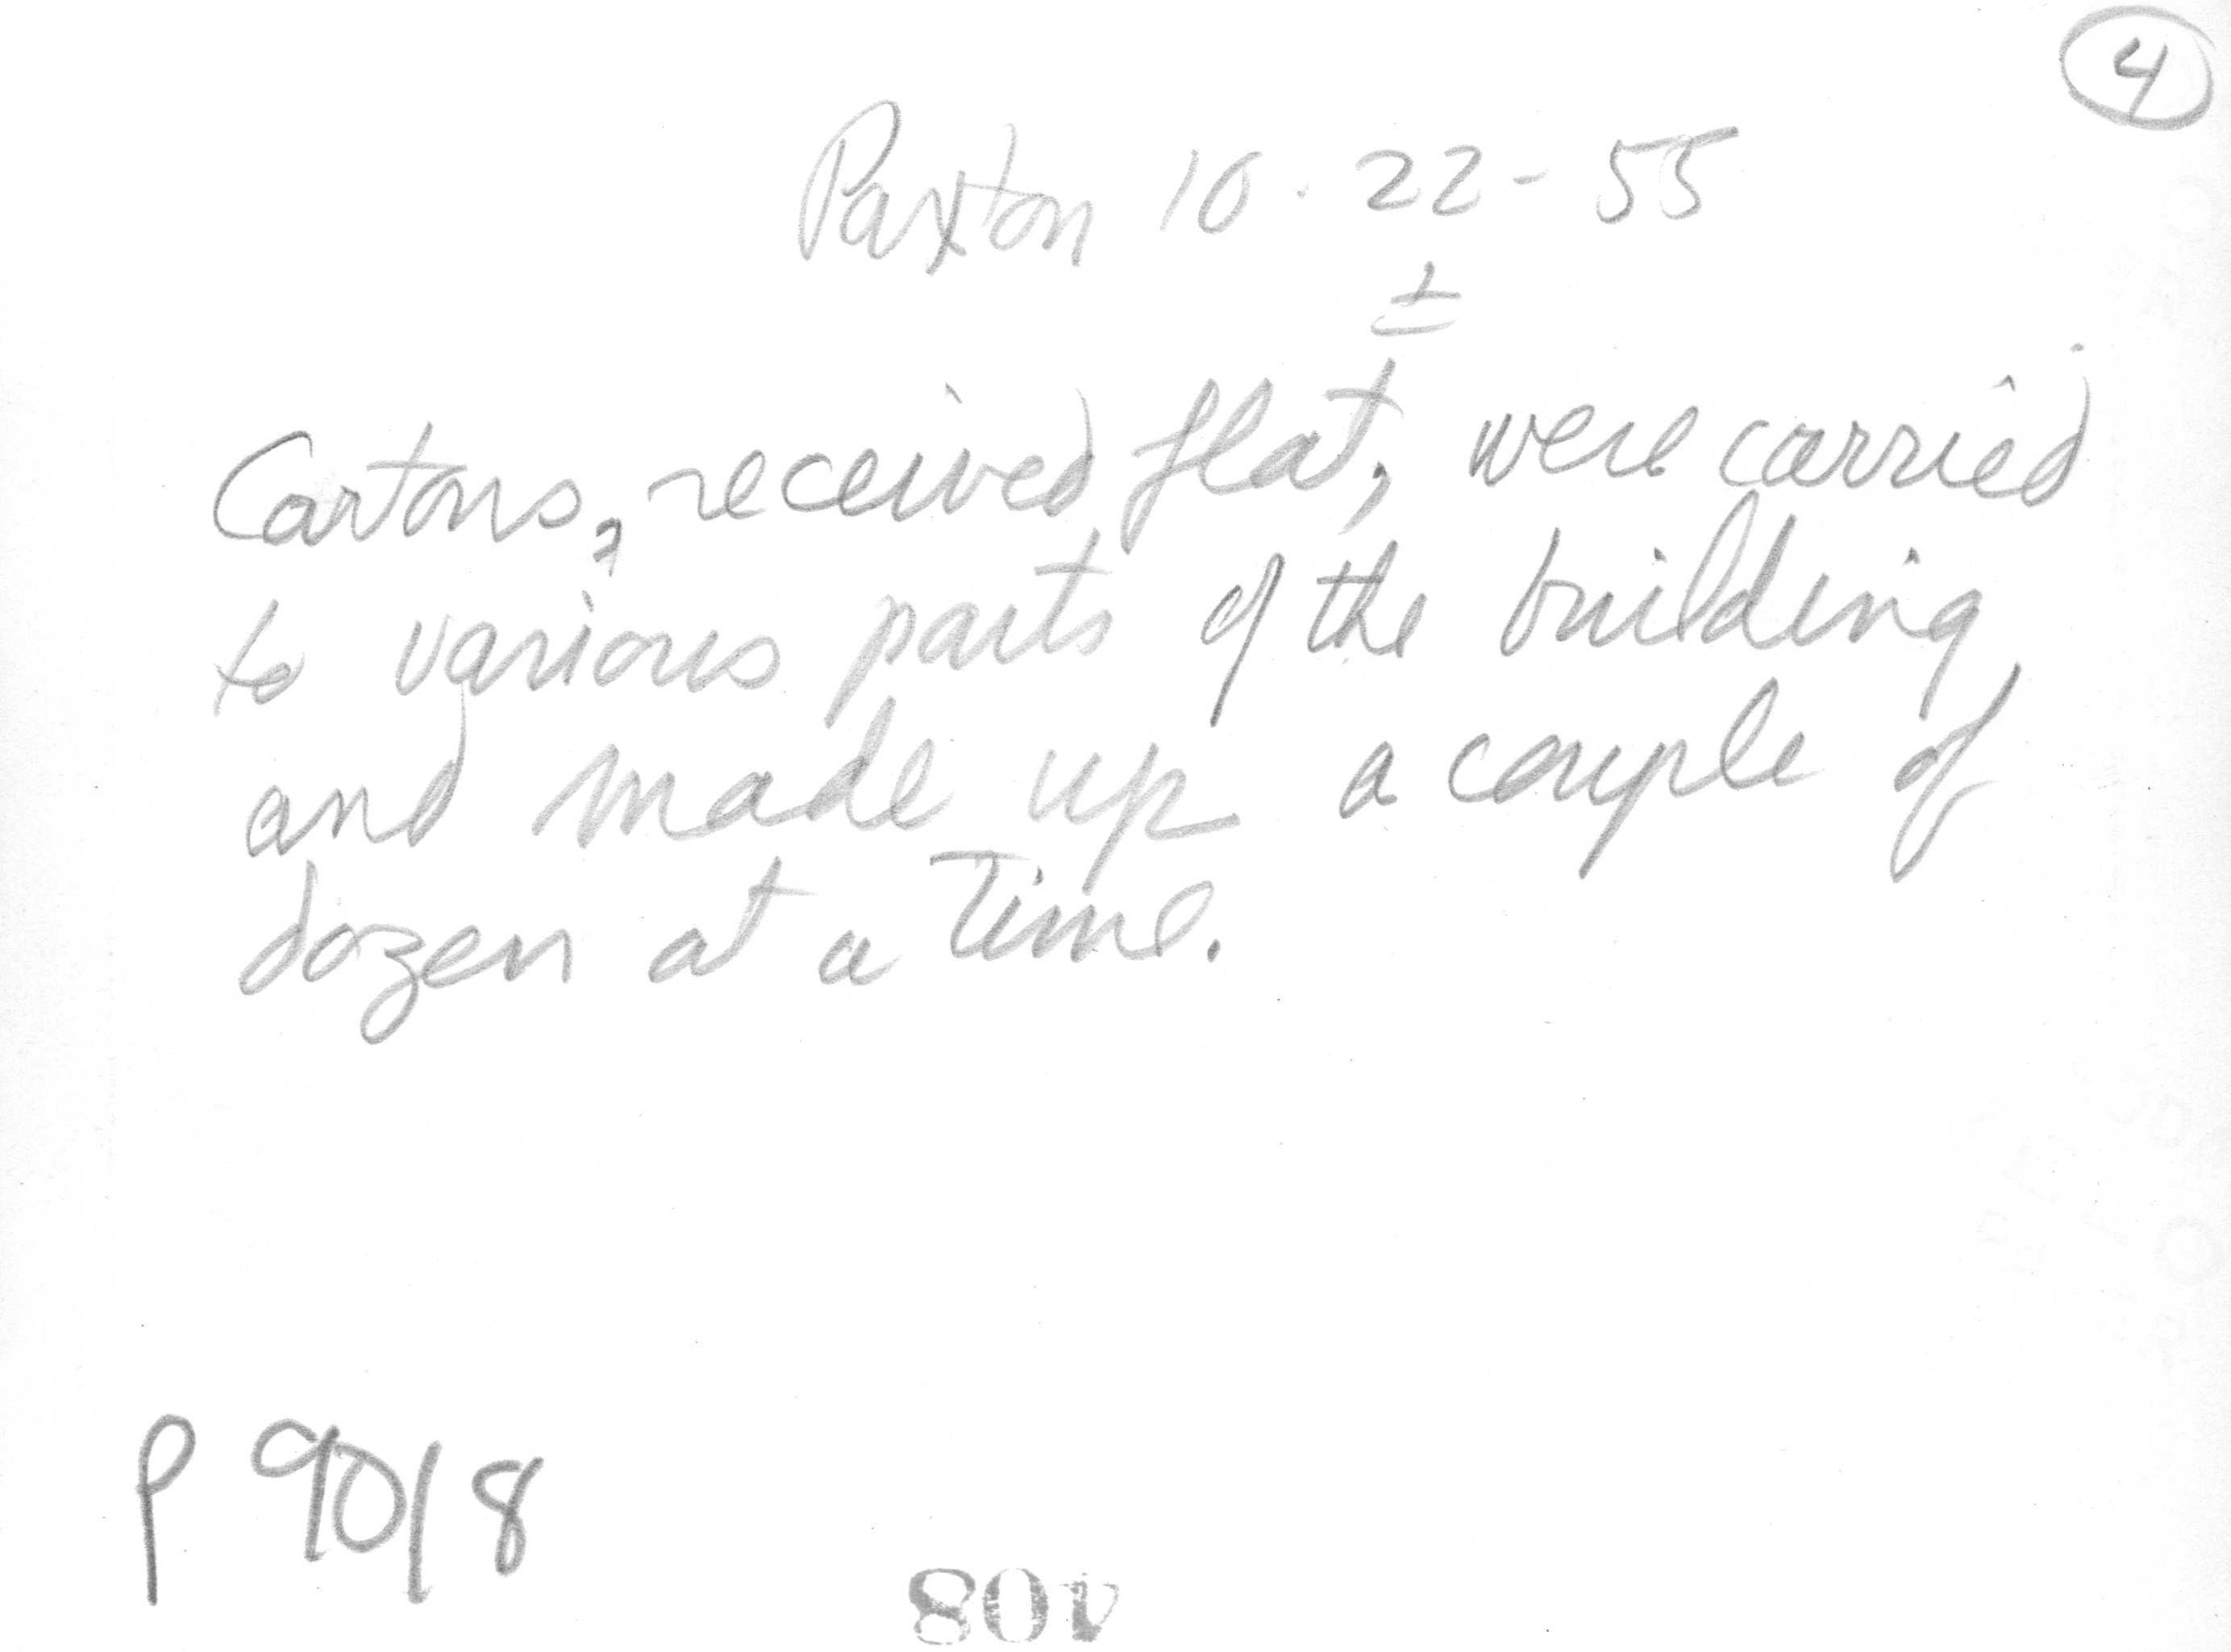 4
Paxton 10·22-55
±
Cartons, received flat, were carried
to various parts of the building
and made up a couple of
dozen at a time.
P 9018